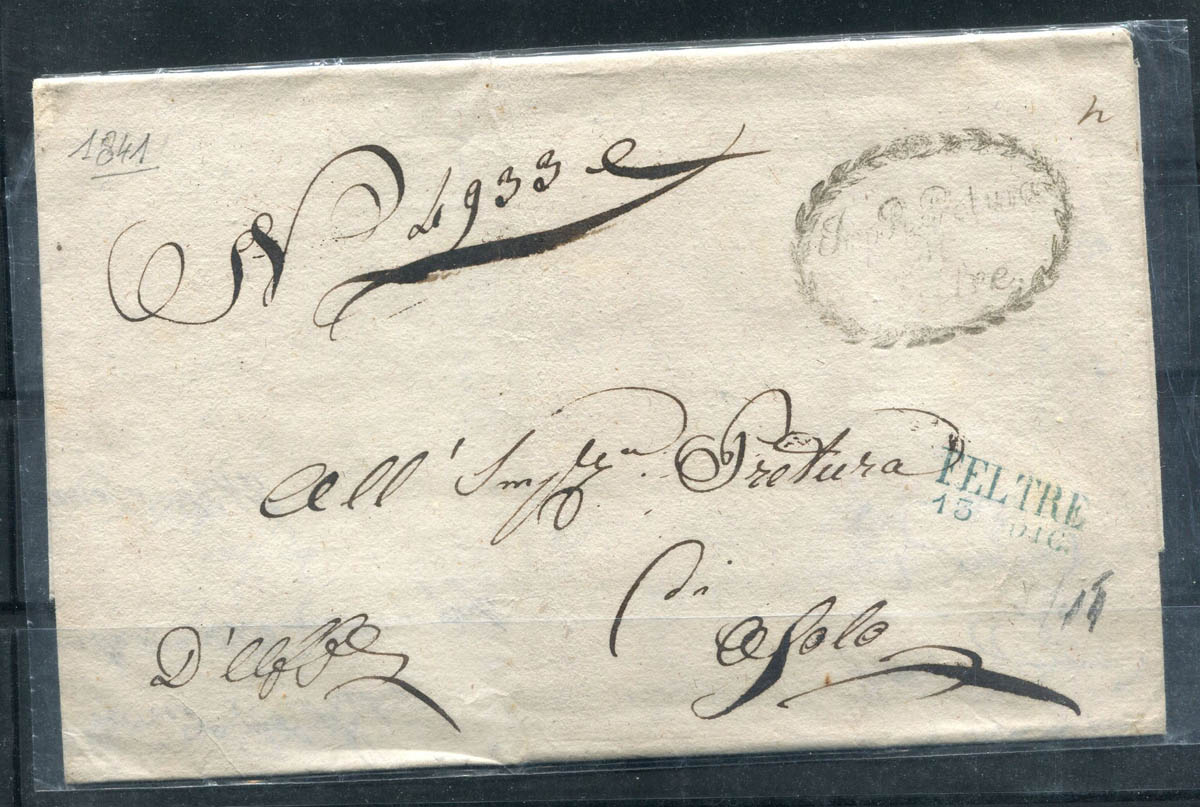 1841
N 4933
Imp. R. Pretura
All' Pretura
FELTRE
13 DIC.
di
Asolo
D'Uff